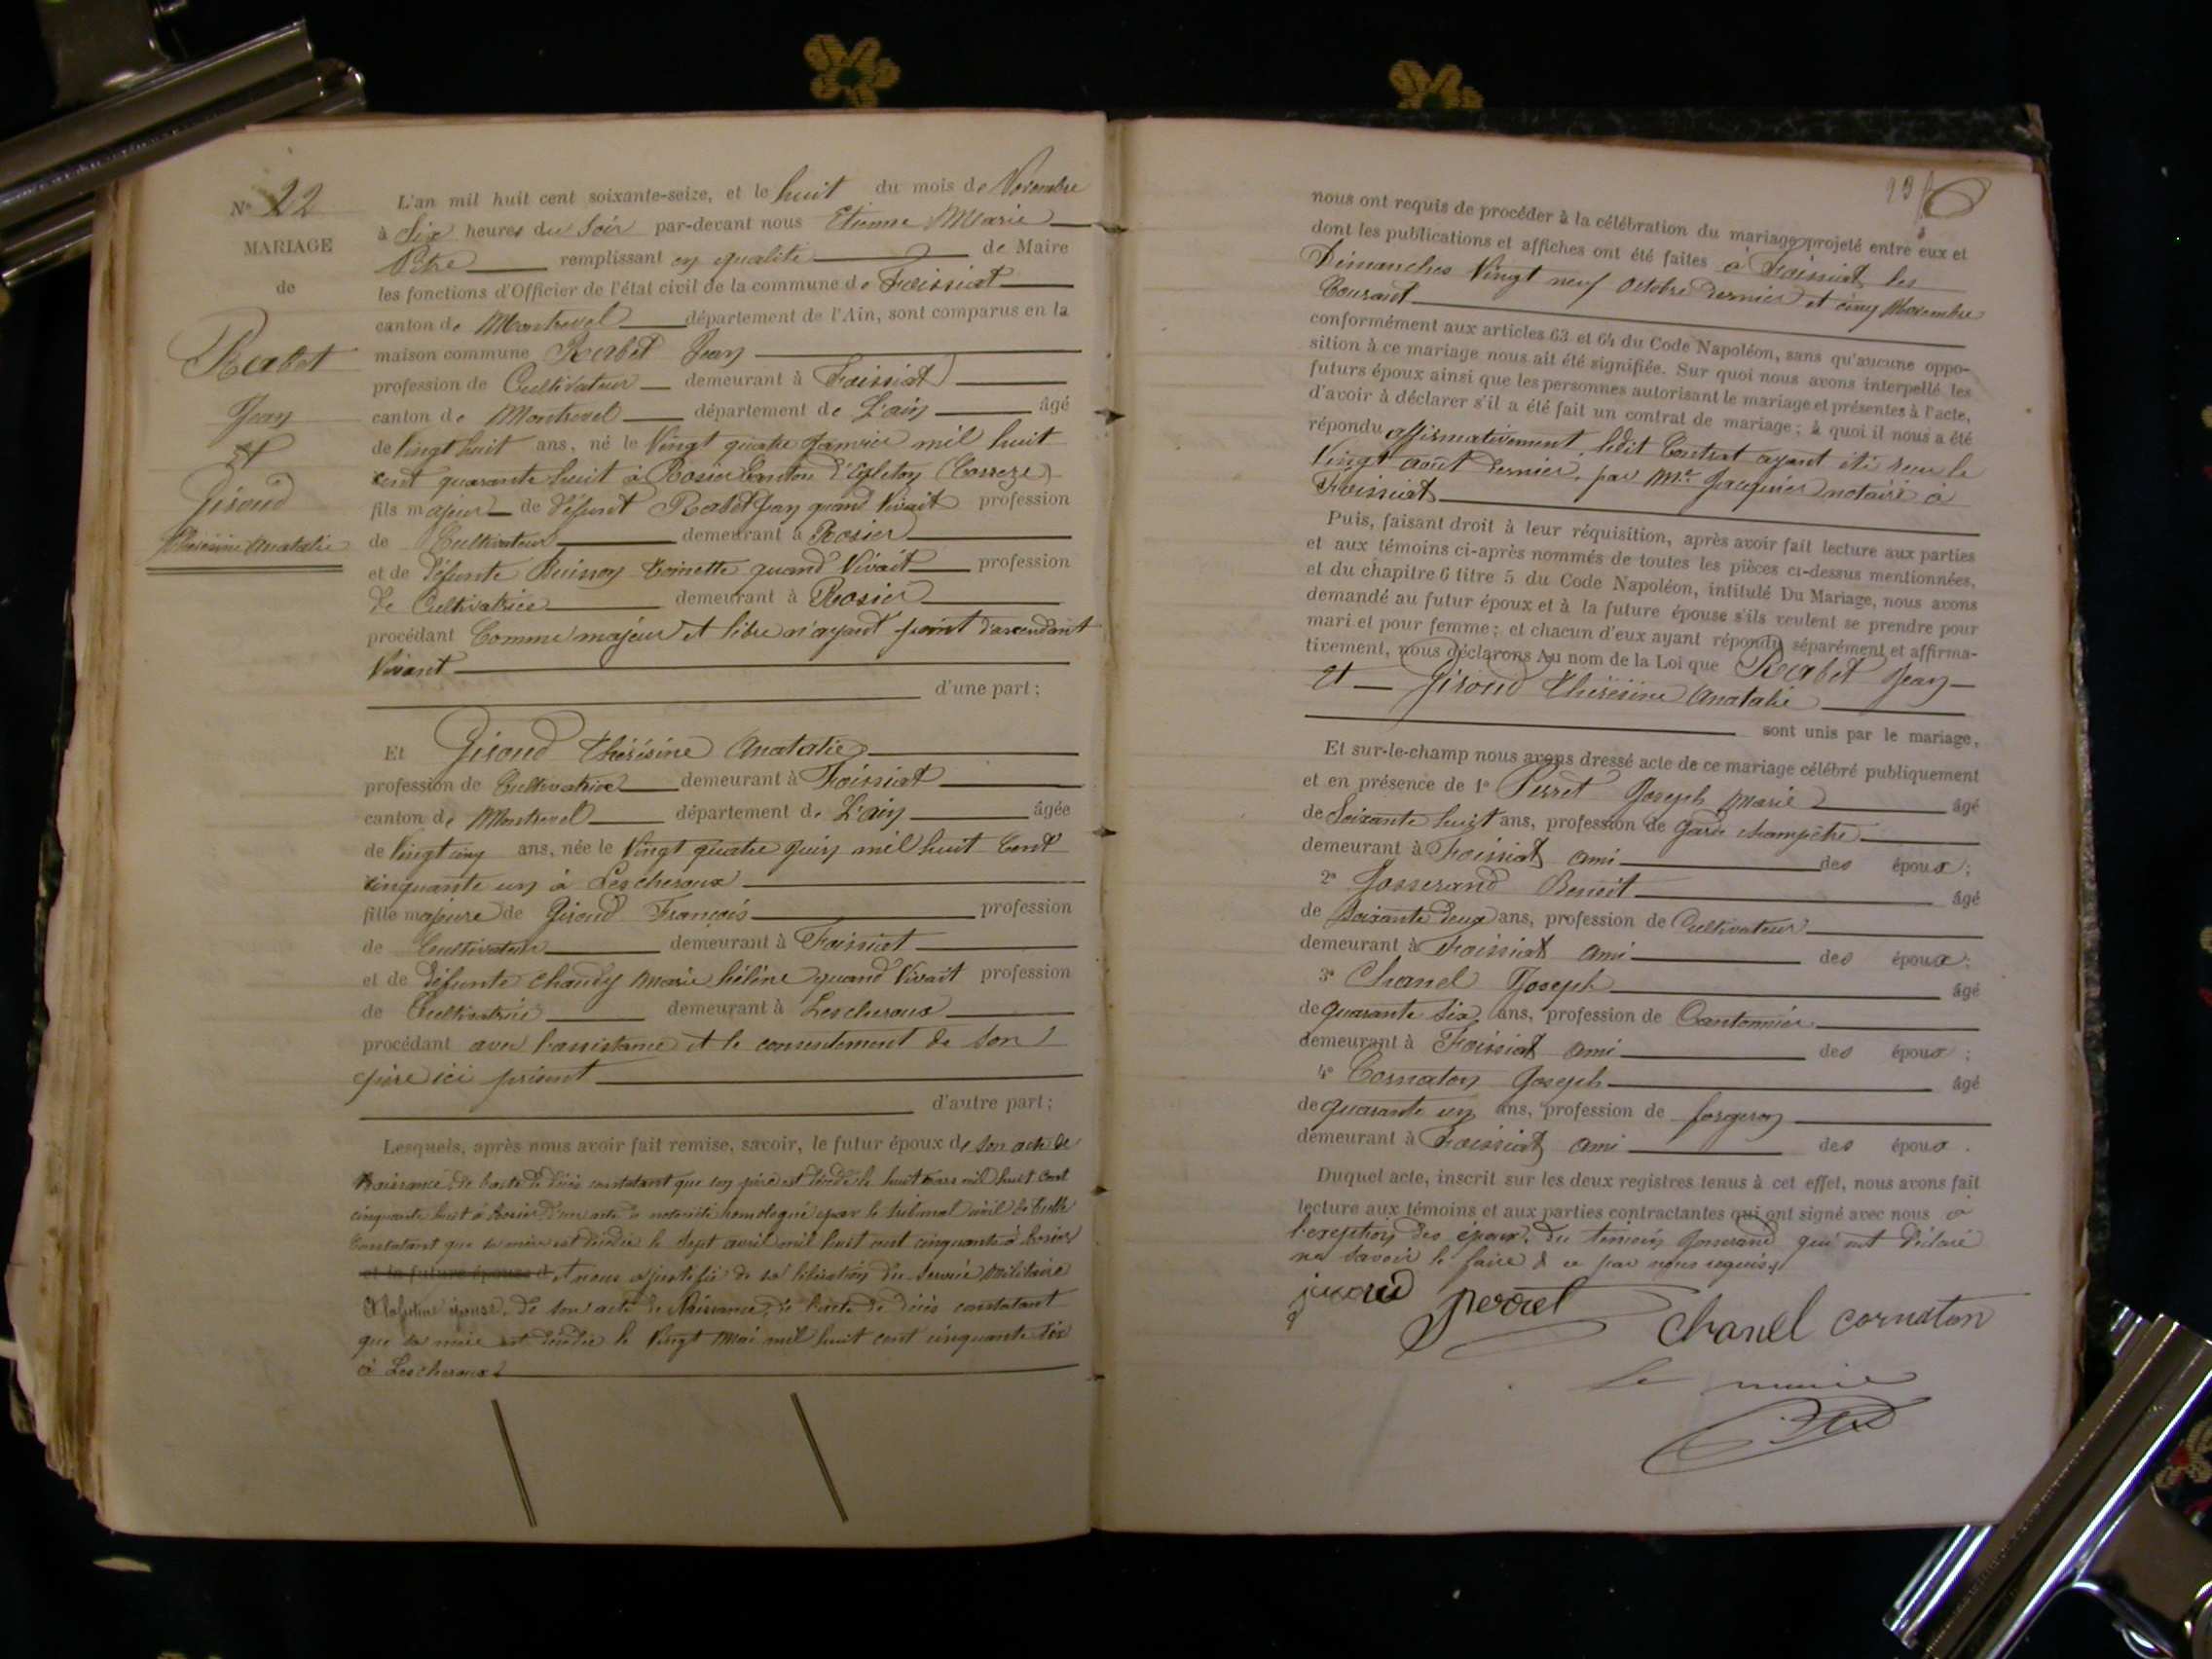 N° 22
MARIAGE
de
Rabet
Jean
et
Giroud
Thérésine Anatalie
L'an mil huit cent soixante-seize, et le huit du mois de Novembre
à Six heures du Soir par-devant nous Etienne Marie
Pitre remplissant en qualité de Maire
les fonctions d'Officier de l'état civil de la commune de Foissiat
canton de Montrevel département de l'Ain, sont comparus en la
maison commune Rabet Jean
profession de Cultivateur demeurant à Foissiat
canton de Montrevel département de L'ain âgé
de Vingt huit ans, né le Vingt quatre Janvier mil huit
cent quarante huit à Rosier Canton d'Egleton (Correze)
fils majeur de défunt Rabet Jean quand Vivait profession
de Cultivateur demeurant à Rosier
et de défunte Buisson Toinette quand Vivait profession
de Cultivatrice demeurant à Rosier
procédant Comme majeur et libre n'ayant point d'ascendant
Vivant
d'une part;
Et Giroud Thérésine Anatalie
profession de Cultivatrice demeurant à Foissiat
canton de Montrevel département de L'ain âgée
de Vingt cinq ans, née le Vingt quatre Juin mil huit Cent
cinquante un à Lescheroux
fille majeure de Giroud François profession
de Cultivateur demeurant à Foissiat
et de défunte Chaudy Marie hélène quand Vivait profession
de Cultivatrice demeurant à Lescheroux
procédant avec l'assistance et le consentement de son
père ici présent
d'autre part;
Lesquels, après nous avoir fait remise, savoir, le futur époux de son acte de
Naissance, de l'acte de décès constatant que son père est décédé le huit mars mil huit cent
cinquante huit à Rosier, d'un acte de notoriété homologué par le tribunal civil de Tulle
Constatant que sa mère est décédée le Sept avril mil huit cent cinquante à Rosier
et la future épouse d et nous a justifié de sa libération du Service Militaire
Et la future épouse, de son acte de Naissance, de l'acte de décès constatant
que sa mère est décédée le Vingt Mai mil huit cent cinquante six
à Lescheroux
nous ont requis de procéder à la célébration du mariage projeté entre eux et
dont les publications et affiches ont été faites à Foissiat les
Dimanches Vingt neuf Octobre dernier et cinq Novembre
Courant
conformément aux articles 63 et 64 du Code Napoléon, sans qu'aucune oppo-
sition à ce mariage nous ait été signifiée. Sur quoi nous avons interpellé les
futurs époux ainsi que les personnes autorisant le mariage et présentes à l'acte,
d'avoir à déclarer s'il a été fait un contrat de mariage; à quoi il nous a été
répondu affirmativement, ledit Contrat ayant été reçu le
Vingt Août dernier, par Me Jauquier notaire à
Foissiat
Puis, faisant droit à leur réquisition, après avoir fait lecture aux parties
et aux témoins ci-après nommés de toutes les pièces ci-dessus mentionnées,
et du chapitre 6 titre 5 du Code Napoléon, intitulé Du Mariage, nous avons
demandé au futur époux et à la future épouse s'ils veulent se prendre pour
mari et pour femme; et chacun d'eux ayant répondu séparément et affirma-
tivement, nous déclarons Au nom de la Loi que Rabet Jean
et Giroud Thérésine Anatalie
sont unis par le mariage,
Et sur-le-champ nous avons dressé acte de ce mariage célébré publiquement
et en présence de 1° Perret Joseph Marie âgé
de Soixante huit ans, profession de Garde champêtre
demeurant à Foissiat ami des époux;
2° Josserand Benoît âgé
de Soixante deux ans, profession de Cultivateur
demeurant à Foissiat ami des époux;
3° Chanel Joseph âgé
de quarante six ans, profession de Cantonnier
demeurant à Foissiat ami des époux;
4° Cornaton Joseph âgé
de quarante un ans, profession de forgeron
demeurant à Foissiat ami des époux.
Duquel acte, inscrit sur les deux registres tenus à cet effet, nous avons fait
lecture aux témoins et aux parties contractantes qui ont signé avec nous à
l'exception des époux, du témoin Josserand qui ont déclaré
ne savoir le faire de ce par nous requis
perret
chanel cornaton
Le maire